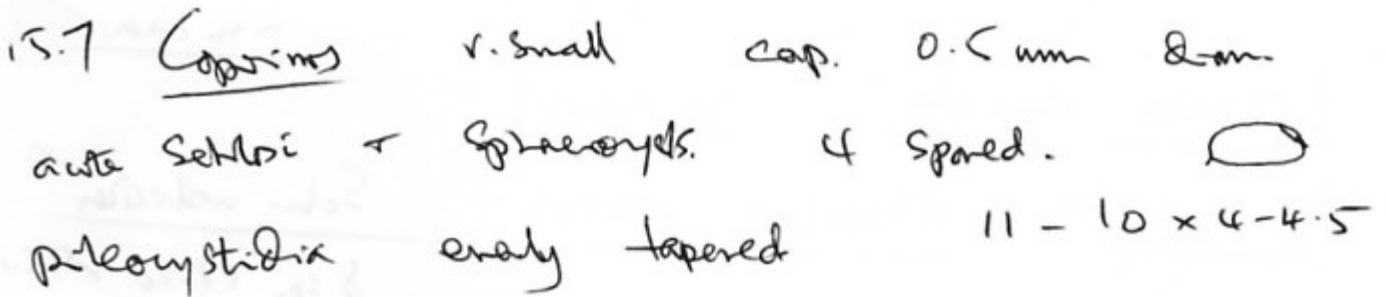 15.7 Coprinus v. small cap. 0.5 mm diam.
acute setulosi + Sphaerocysts. 4 spored.
pileocystidia evenly tapered 11 - 10 × 4-4.5